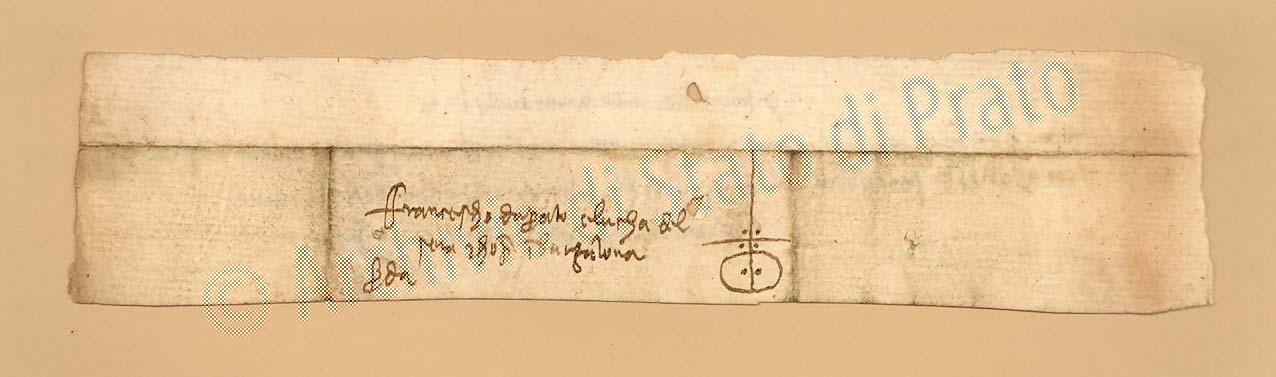 Francescho da prato e lucha del
sera e chop in barzalona
p̱da
© Archivio di Stato di Prato